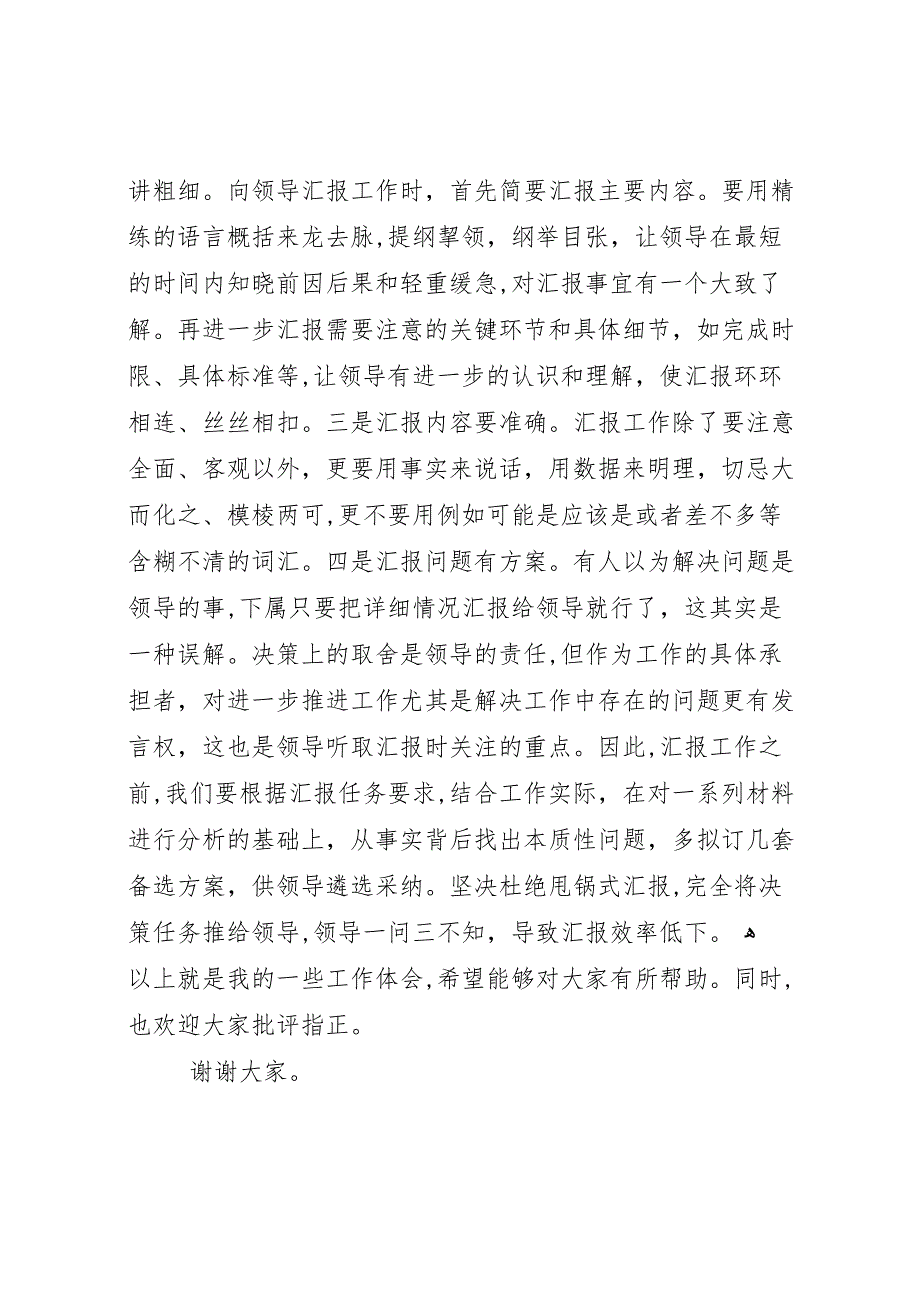 讲粗细。向领导汇报工作时，首先简要汇报主要内容。要用精
练的语言概括来龙去脉,提纲挈领，纲举目张，让领导在最短
的时间内知晓前因后果和轻重缓急,对汇报事宜有一个大致了
解。再进一步汇报需要注意的关键环节和具体细节，如完成时
限、具体标准等,让领导有进一步的认识和理解，使汇报环环
相连、丝丝相扣。三是汇报内容要准确。汇报工作除了要注意
全面、客观以外，更要用事实来说话，用数据来明理，切忌大
而化之、模棱两可,更不要用例如可能是应该是或者差不多等
含糊不清的词汇。四是汇报问题有方案。有人以为解决问题是
领导的事,下属只要把详细情况汇报给领导就行了，这其实是
一种误解。决策上的取舍是领导的责任,但作为工作的具体承
担者，对进一步推进工作尤其是解决工作中存在的问题更有发
言权，这也是领导听取汇报时关注的重点。因此,汇报工作之
前,我们要根据汇报任务要求,结合工作实际，在对一系列材料
进行分析的基础上，从事实背后找出本质性问题，多拟订几套
备选方案，供领导遴选采纳。坚决杜绝甩锅式汇报,完全将决
策任务推给领导,领导一问三不知，导致汇报效率低下。 ﻫ
以上就是我的一些工作体会,希望能够对大家有所帮助。同时,
也欢迎大家批评指正。
谢谢大家。